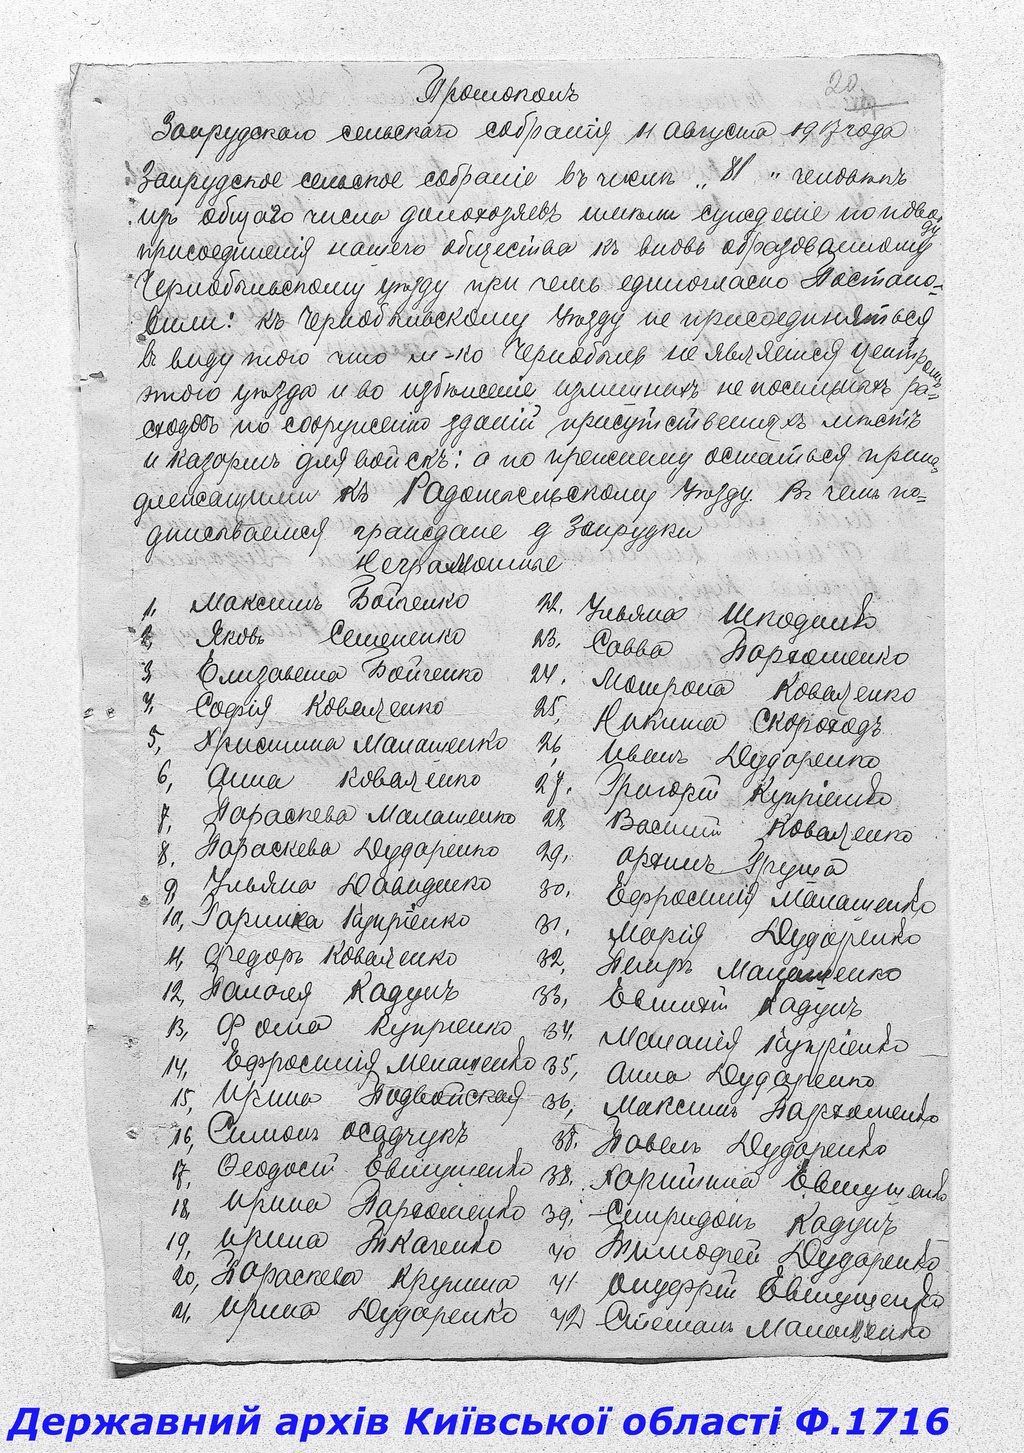 Протоколъ
20
Заирудскаго сельскаго собранія 11 августа 1917 года
Заирудское сельское собраніе въ числѣ „81" человѣкъ
изъ общаго числа домохозяевъ имѣли сужденіе по поводу
присоединенія нашего общества къ вновь образованному
Чернобыльскому уѣзду при чемъ единогласно Постано-
вили: къ Чернобыльскому уѣзду не присоединяться
въ виду того что м-ко Чернобыль не является центромъ
этого уѣзда и во избѣженіе излишнихъ не посильныхъ ра-
сходовъ по сооруженію зданій присутственныхъ мѣстъ
и казармъ для войскъ: а по прежнему остаться прина
длежащими къ Радомысльскому уѣзду. Въ чемъ по-
дписываемся граждане д Заирудки
Неграмотные
1, Максимъ Бойченко
2, Яковъ Семененко
3, Елизавета Бойченко
4, Софія Коваленко
5, Христина Малашенко
6, Анна Коваленко
7, Параскева Малашенко
8, Параскева Дударенко
9, Ульяна Давиденко
10, Гарпина Купріенко
11, Федоръ Коваленко
12, Палагея Кадунъ
13, Фома Купріенко
14, Ефросинія Мелашенко
15, Ирина Подвойская
16, Симонъ Осадчукъ
17, Феодосій Евтушенко
18, Ирина Пархоменко
19, Ирина Ткаченко
20, Параскева Крупина
21, Ирина Дударенко
22. Ульяна Шкоденко
23. Савва Пархоменко
24. Мотрона Коваленко
25, Никита Скороходъ
26, Иванъ Дударенко
27. Григорій Купріенко
28, Василій Коваленко
29. Архипъ Груша
30. Ефросинія Малашенко
31. Марія Дударенко
32, Петръ Малашенко
33, Евтихій Кадунъ
34, Маланія Купріенко
35, Анна Дударенко
36, Максимъ Пархоменко
37. Павелъ Дударенко
38. Харитина Евтушенко
39, Спиридонъ Кадунъ
40 Тимофей Дударенко
41 Онуфрій Евтушенко
42) Степанъ Малашенко
Державний архів Київської області Ф.1716